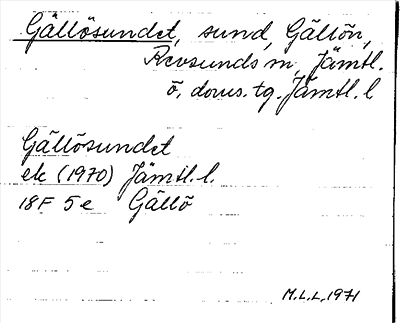 Gällösundet, sund, Gällön,
Revsunds sn, Jämtl.
ö. doms. tg. Jämtl. l
Gällösundet
ek (1970) Jämtl. l.
18F 5e Gällö
M.L.L. 1971